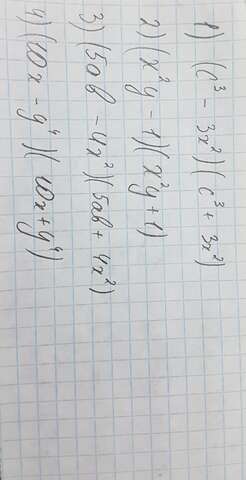 1) (c³ - 3x²)(c³ + 3x²)
2) (x²y - 1)(x²y + 1)
3) (5ab - 4x²)(5ab + 4x²)
4) (10x - y⁴)(10x + y⁴)